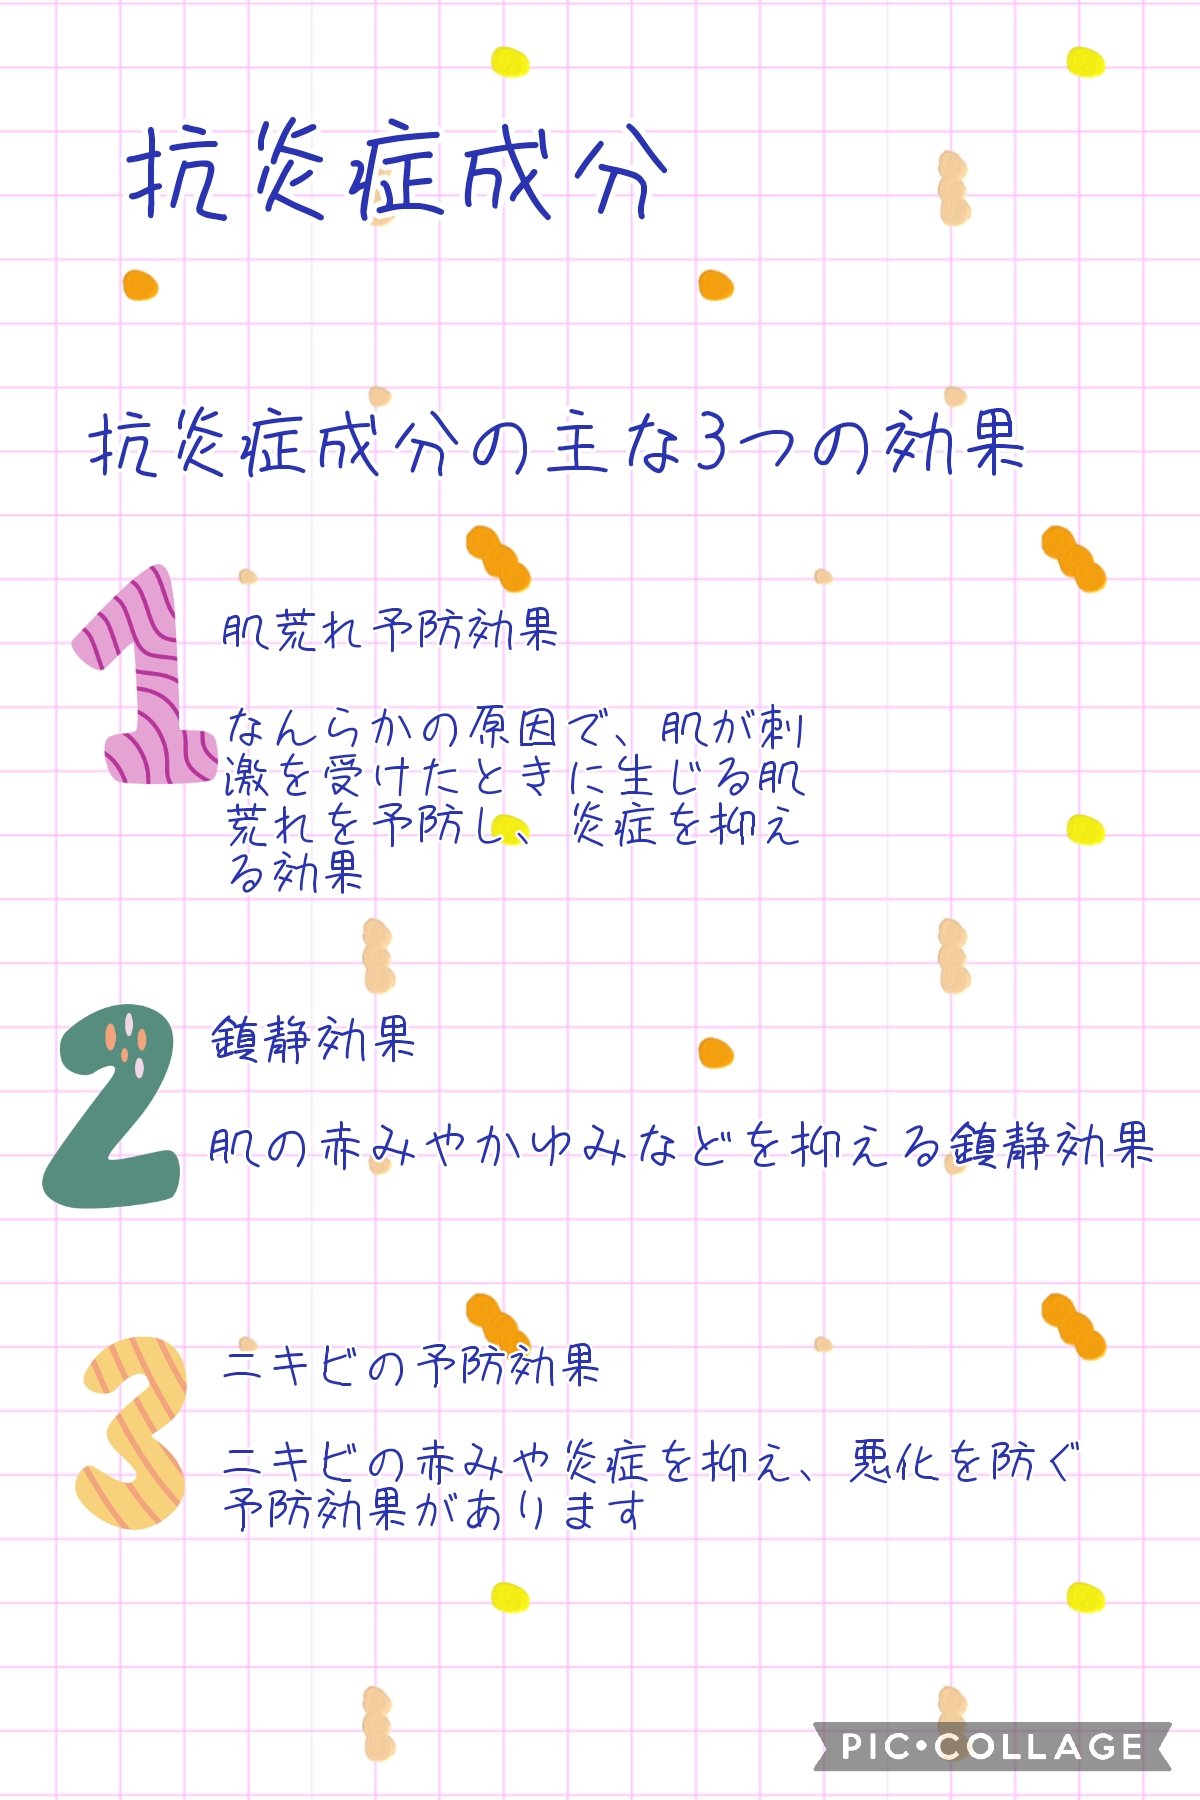 抗炎症成分
抗炎症成分の主な3つの効果
1
肌荒れ予防効果
なんらかの原因で、肌が刺
激を受けたときに生じる肌
荒れを予防し、炎症を抑え
る効果
2
鎮静効果
肌の赤みやかゆみなどを抑える鎮静効果
3
ニキビの予防効果
ニキビの赤みや炎症を抑え、悪化を防ぐ
予防効果があります
PIC•COLLAGE